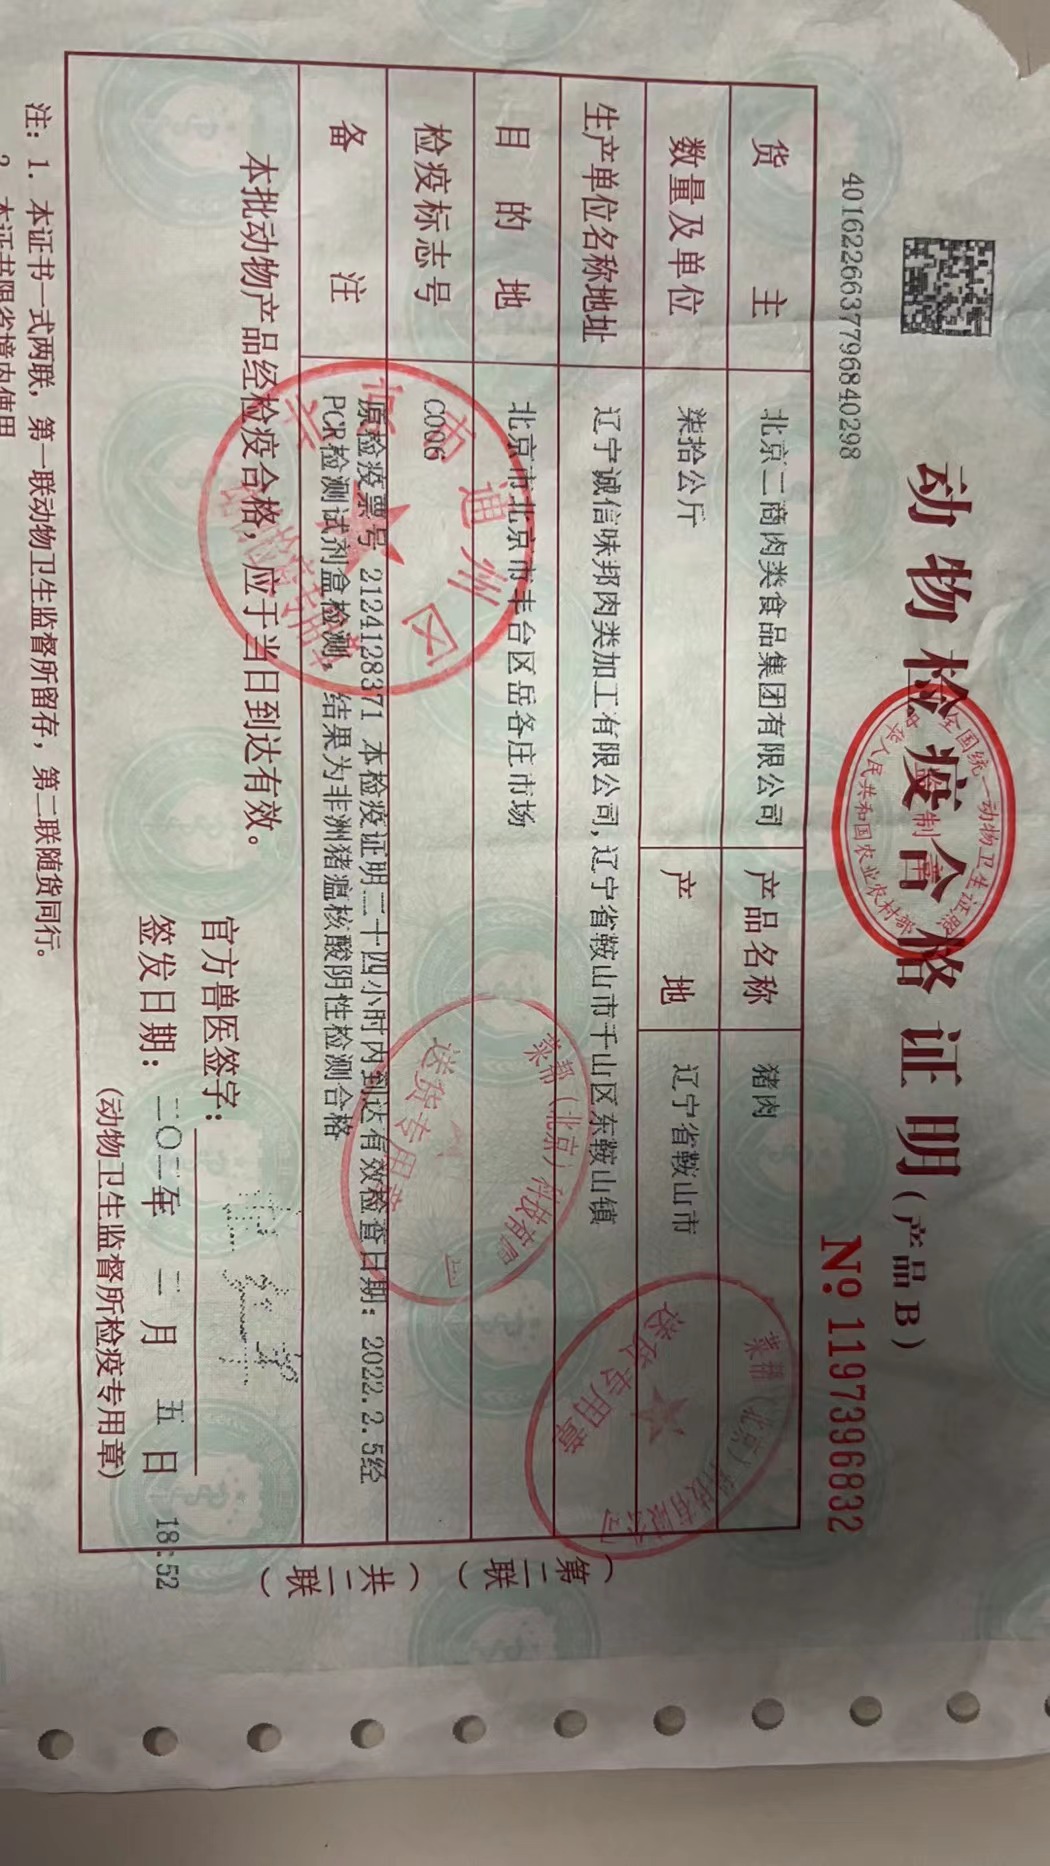 4016226637796840298
动物检疫合格证明(产品B)
全国统一动物卫生证照
监制章
中华人民共和国农业农村部
№ 11973968​32
货主 北京二商肉类食品集团有限公司 产品名称 猪肉
数量及单位 柒拾公斤 产地 辽宁省鞍山市
生产单位名称地址 辽宁诚信味邦肉类加工有限公司,辽宁省鞍山市千山区东鞍山镇
目的地 北京市北京市丰台区岳各庄市场
检疫标志号 C006
备注 原检疫票号 2124128371 本检疫证明二十四小时内到达有效检查日期:2022.2.5经
PCR检测试剂盒检测,结果为非洲猪瘟核酸阴性检测合格
本批动物产品经检疫合格,应于当日到达有效。
官方兽医签字:
签发日期:二〇二二年 二 月 五 日 18:52
(动物卫生监督所检疫专用章)
(第二联)
(共二联)
市通州区
菜帮(北京)科技有限公司
送货专用章
菜帮(北京)科技有限公司
送货专用章
注:1.本证书一式两联,第一联动物卫生监督所留存,第二联随货同行。
2.本证书限省境内使用